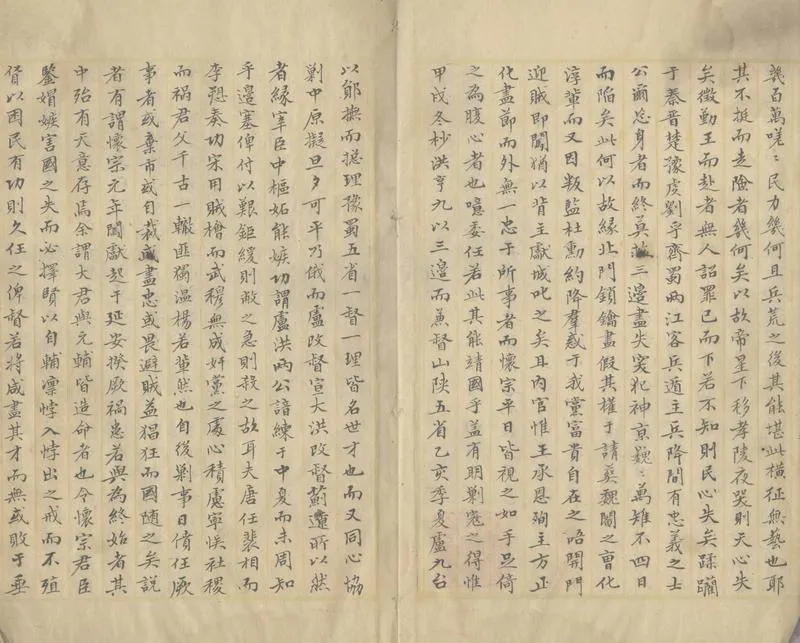 幾百萬嗟〻民力幾何且兵荒之後其能堪此橫征無藝也耶
其不挺而走險者幾何矣以故帝星下移孝陵夜哭則天心失
矣徵勤王而赴者無人詔罪己而下若不知則民心失矣蹂躪
于秦晉楚豫虔劉乎齊蜀兩江客兵遁主兵降間有忠義之士
公爾忘身者而終莫 三邊盡失突犯神京巍〻萬雉不四日
而陷矣此何以故緣北門鎖鑰盡假其權于請 魏閹之曹化
淳輩而又因叛監杜勳約降羣惑于我黨富貴自在之唔開門
迎賊即闖猶以背主獻城叱之矣且內官惟王承恩殉主方正
化盡節而外無一忠于所事者而懷宗平日皆視之如手足倚
之為腹心者也噫委任若此其能靖國乎蓋有明剿寇之得惟
甲戌冬杪洪亨九以三邊而兼督山陝五省乙亥季夏盧九台
以鄖撫而摠理豫蜀五省一督一理皆名世才也而又同心協
剿中原擬旦夕可平乃俄而盧改督宣大洪改督薊遼所以然
者緣宰臣中樞妬能嫉功謂盧洪兩公諳練于中夏而未周知
乎邊塞俾付以艱鉅緩則敝之急則殺之故耳夫唐任裴相而
李愬奏功宋用賊檜而武穆無成奸黨之處心積慮寧悞社稷
而禍君父千古一轍匪獨溫楊若輩然也自後剿事日僨任厥
事者或棄市或自裁或盡忠或畏避賊益猖狂而國隨之矣說
者有謂懷宗元年闖獻起于延安揆厥禍患若與為終始者其
中殆有天意存焉余謂大君與元輔皆造命者也令懷宗君臣
鑒媢嫉害國之失而必擇賢以自輔凜悖入悖出之戒而不殖
貨以困民有功則久任之俾督若將咸盡其才而無或敗于垂